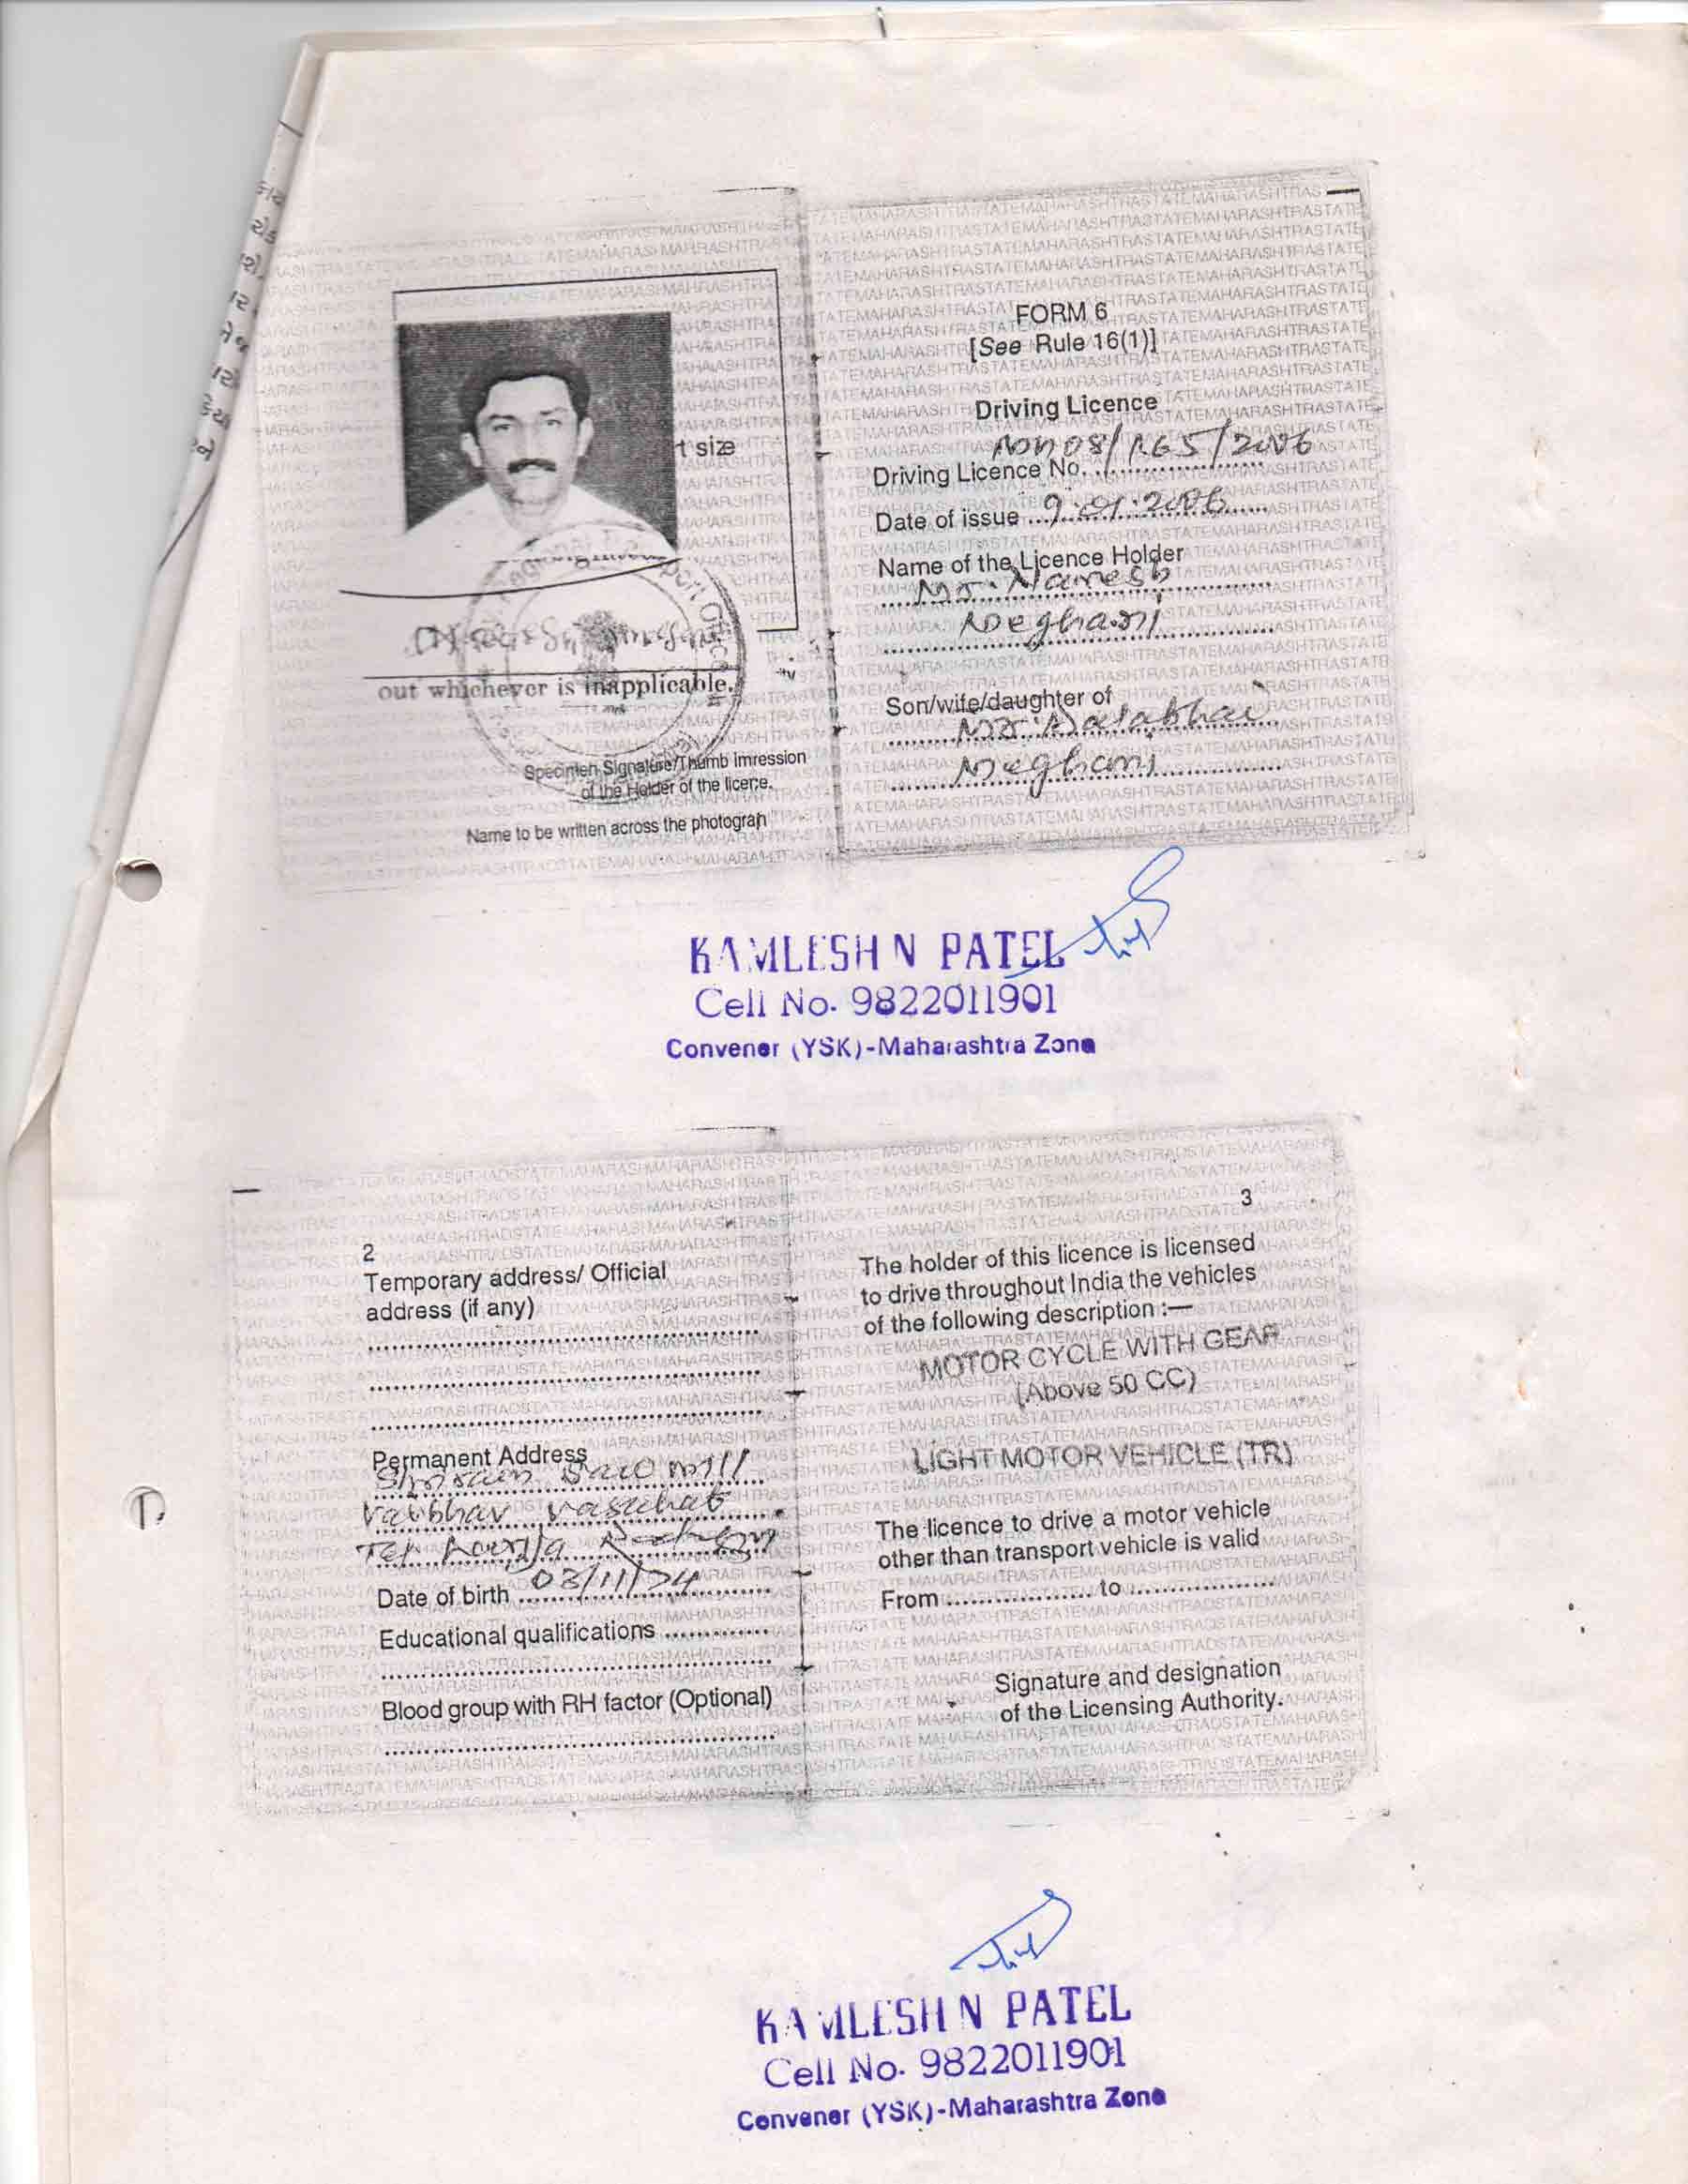 t size
out whichever is inapplicable.
Specimen Signature/Thumb Imression
of the Holder of the licence.
Name to be written across the photograph
FORM 6
[See Rule 16(1)]
Driving Licence
Driving Licence No. MH08/165/2006
Date of issue 9.01.2006
Name of the Licence Holder
Mr. Naresh
Meghani
Son/wife/daughter of
Mr.
Meghani
KAMLESH N PATEL
Cell No. 9822011901
Convener (YSK)-Maharashtra Zone
2
Temporary address/ Official
address (if any)
Permanent Address
Saw mill
Vaibhav vasahat
Tal
Date of birth 03/11/74
Educational qualifications
Blood group with RH factor (Optional)
3
The holder of this licence is licensed
to drive throughout India the vehicles
of the following description :—
MOTOR CYCLE WITH GEAR
(Above 50 CC)
LIGHT MOTOR VEHICLE (TR)
The licence to drive a motor vehicle
other than transport vehicle is valid
From .................... to ....................
Signature and designation
of the Licensing Authority.
KAMLESH N PATEL
Cell No. 9822011901
Convener (YSK)-Maharashtra Zone